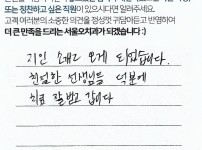 또는 칭찬하고 싶은 직원이 있으시다면 알려주세요.
고객 여러분의 소중한 의견을 정성껏 귀담아듣고 반영하여
더 큰 만족을 드리는 서울오치과가 되겠습니다 :)
지인 소개로 오게 되었습니다.
친절한 선생님들 덕분에
치료 잘 받고 갑니다